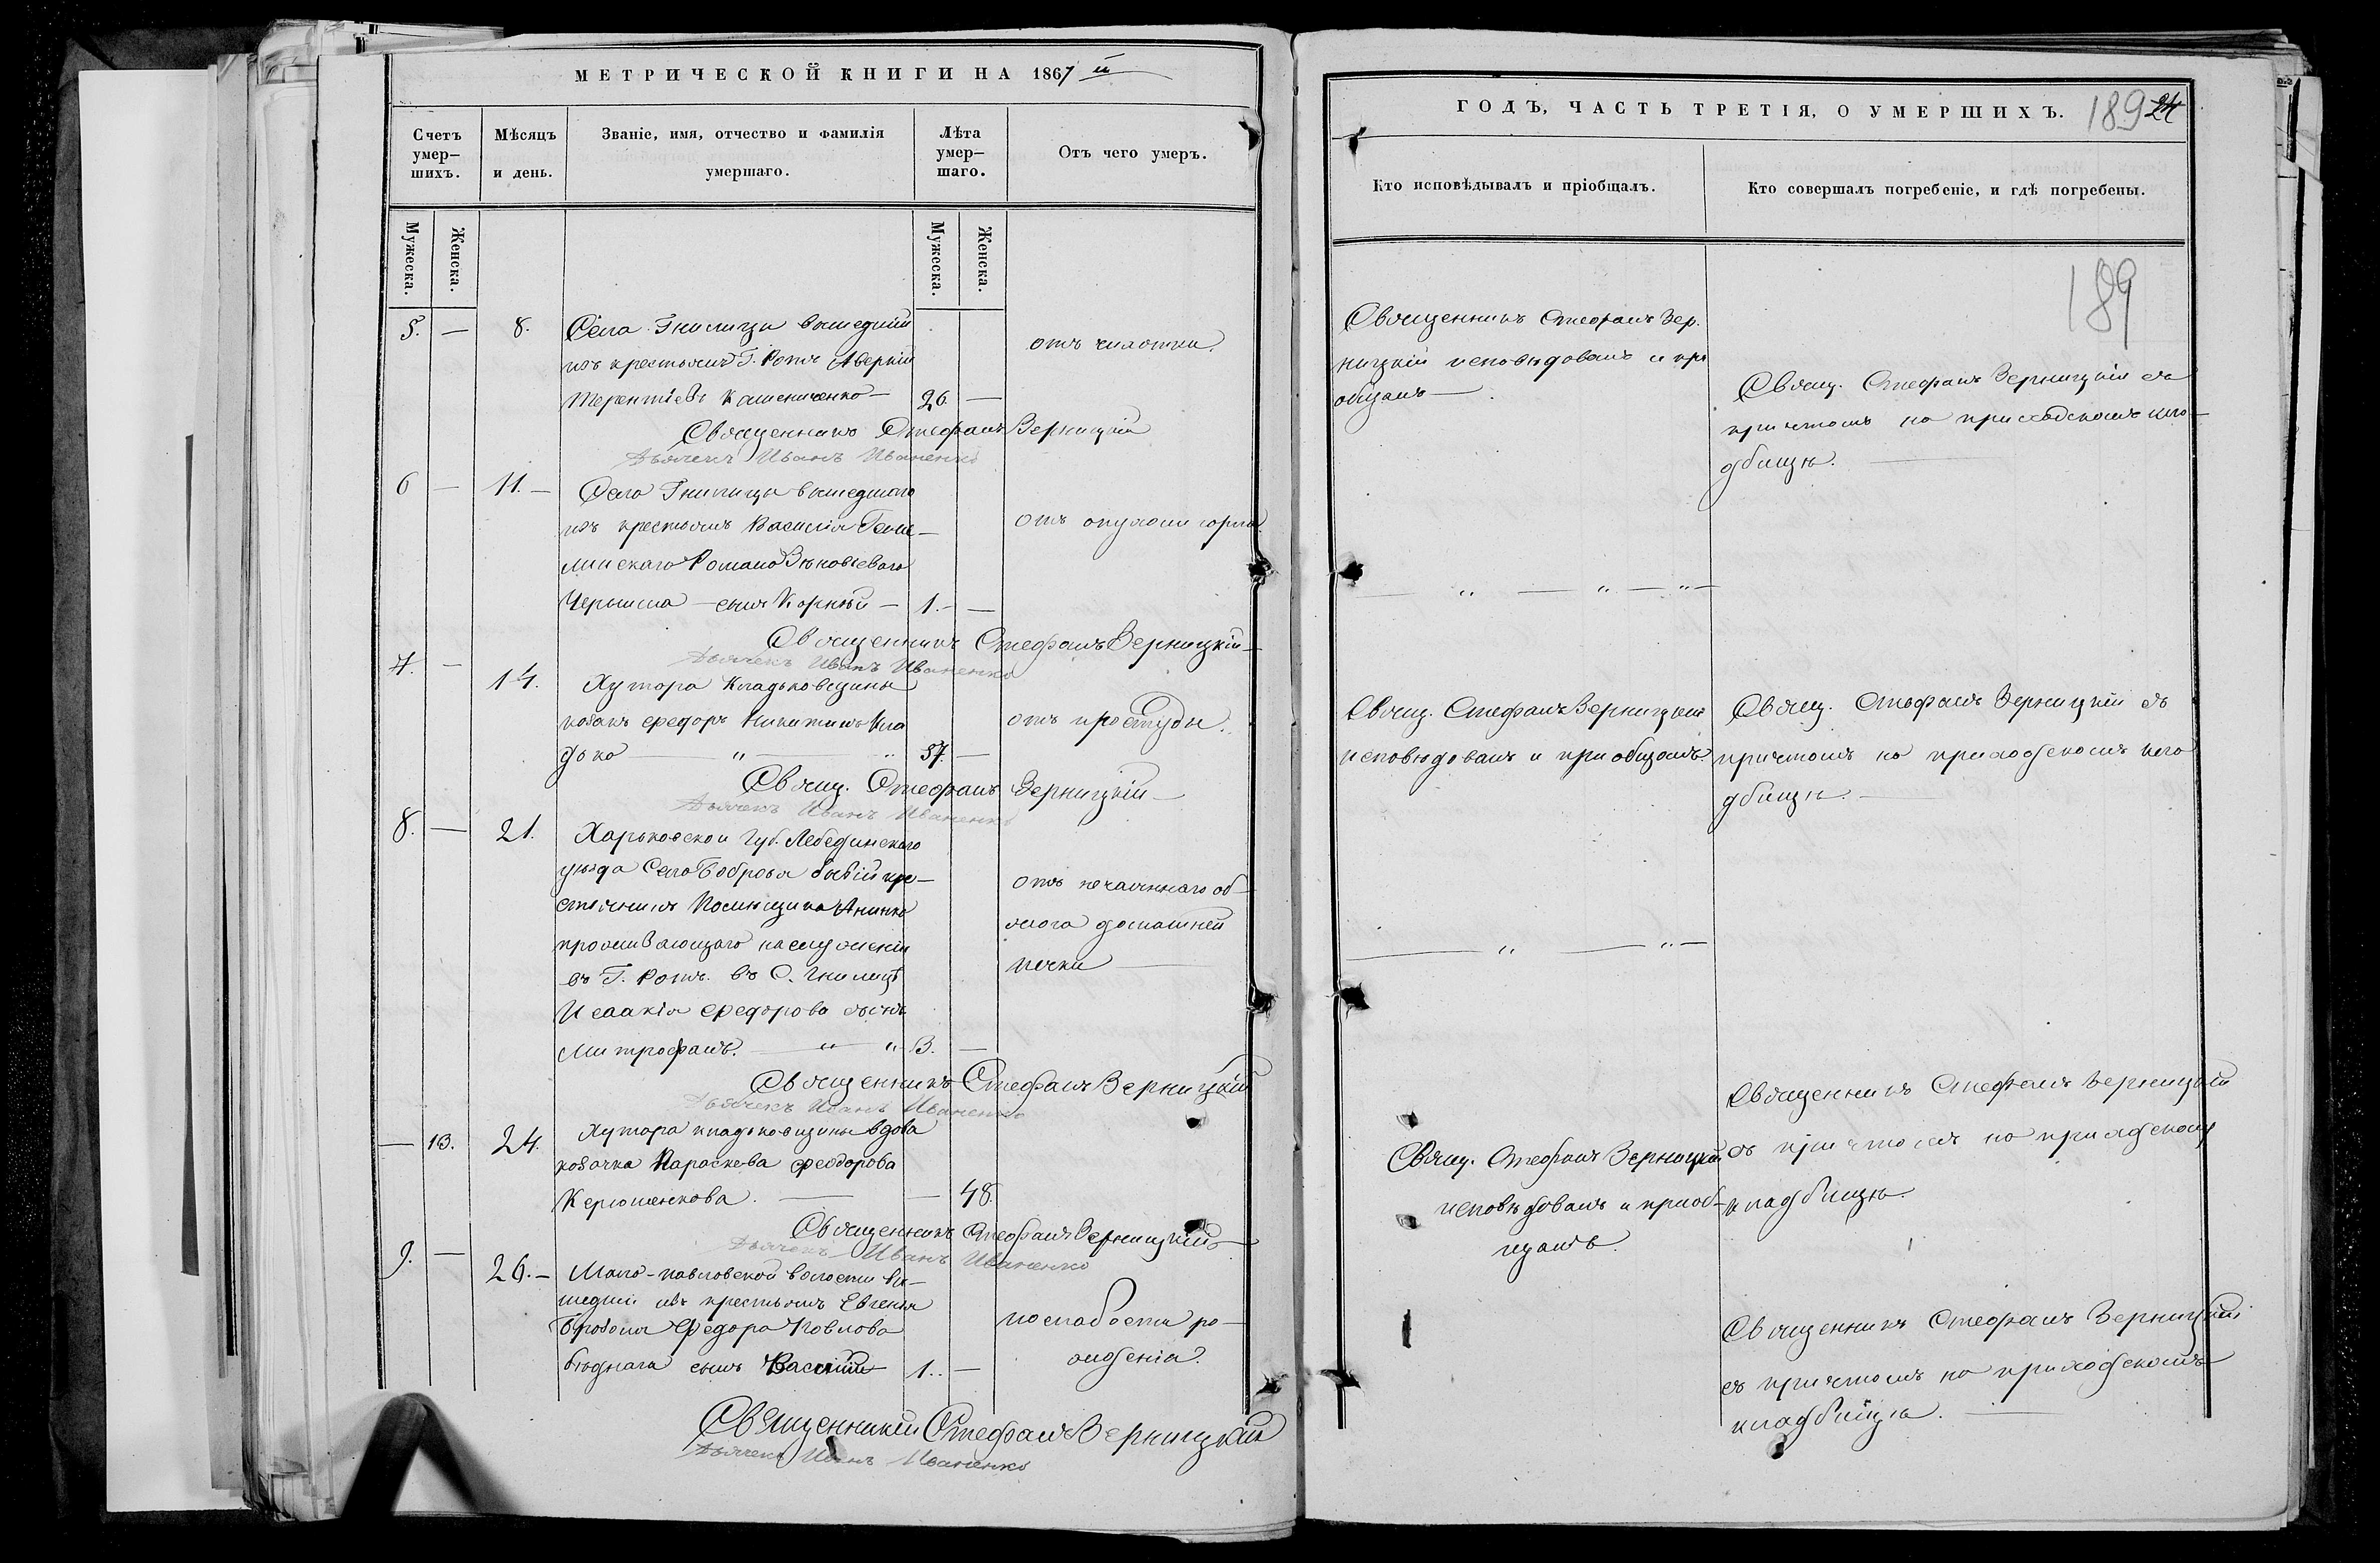 МЕТРИЧЕСКОЙ КНИГИ НА 1867 й
Счетъ умер-шихъ.
Мѣсяцъ и день.
Званіе, имя, отчество и фамилія умершаго.
Лѣта умер-шаго.
Отъ чего умеръ.
Мужеска.
Женска.
Мужеска.
Женска.
5. — 8. Села Гнилицы вышедшій
изъ крестьянъ Г. Ротъ Аверкій
Терентіевъ Кашениченко — 26. —
отъ чихотки.
Священникъ Стефанъ Зерницкій
Дьячекъ Иванъ Иваненко
6 — 11. — Села Гнилицы вышедшого
изъ крестьянъ Василія
Романа Зѣновіевого
Черыша — сынъ Корнѣй — 1. —
отъ опухоли горла
Священникъ Стефанъ Зерницкій
Дьячекъ Иванъ Иваненко
7. — 14. Хутора Кладьковщины
козакъ Федоръ Никитинъ Кла
дько — " — 57. —
отъ простуды.
Свящ. Стефанъ Зерницкій —
Дьячекъ Иванъ Иваненко
8. — 21. Харьковской Губ. Лебединскаго
уѣзда Села Боброва бывій кре-
стьянинъ Помѣщика
проживающаго на служеніи
въ Г. Ротъ. въ С. Гнилицѣ
Исаакія Федорова сынъ
Митрофанъ. — " " 3. —
отъ нечаяннаго об-
жога домашней
печки —
Священникъ Стефанъ Зерницкій
Дьячекъ Иванъ Иваненко
— 13. 24. Хутора кладьковщины вдова
козачка Параскева Феодорова
Керюшенкова. — — 48.
Священникъ Стефанъ Зерницкій —
Дьячекъ Иванъ Иваненко
9. — 26. — Мало-павловской волости вы-
шедшій изъ крестьянъ Евгенія
Федора Павлова
бѣднага сынъ Василій 1. —
по слабости ро-
жденія.
Священникъ Стефанъ Зерницкій
Дьячекъ Иванъ Иваненко
ГОДЪ, ЧАСТЬ ТРЕТІЯ, О УМЕРШИХЪ. 189 24
Кто исповѣдывалъ и пріобщалъ.
Кто совершалъ погребеніе, и гдѣ погребены.
189
Священникъ Стефанъ Зер.
ницкій исповѣдовалъ и при
общалъ — .
Свящ. Стефанъ Зерницкій съ
причтомъ на приходскомъ кла-
дбищѣ. —
— " — " — " —
Свящ. Стефанъ Зерницкій
исповѣдовалъ и приобщалъ
Свящ. Стефанъ Зерницкій съ
причтомъ на приходскомъ кла
дбищѣ. —
— " — " —
Свящ. Стефанъ Зерницкій
исповѣдовалъ и приоб-
щалъ.
Священникъ Стефанъ Зерницкій
съ причтомъ на приходском
кладбищѣ.
Священникъ Стефанъ Зерницкій
съ причтомъ на приходскомъ
кладбищѣ. —